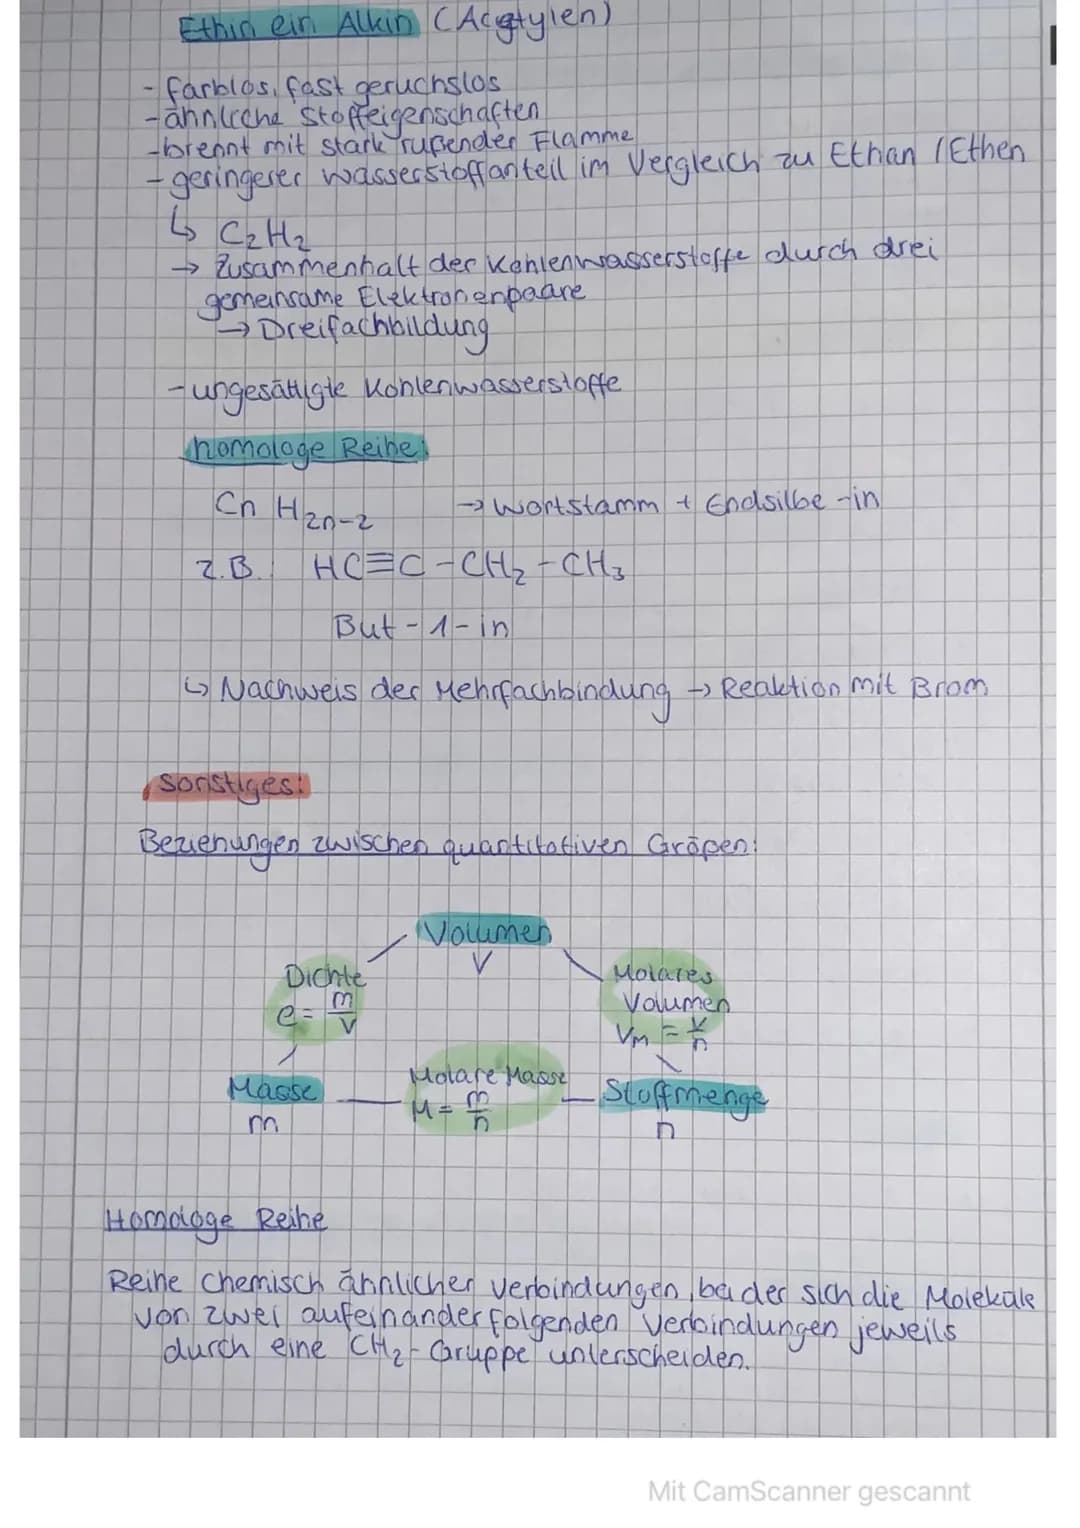 Ethin ein Alkin (Acetylen)
- farblos, fast geruchslos
- ähnliche Stoffeigenschaften
- brennt mit stark rußender Flamme
- geringerer Wasserstoffanteil im Vergleich zu Ethan / Ethen
↳ C₂H₂
→ Zusammenhalt der Kohlenwasserstoffe durch drei
gemeinsame Elektronenpaare
→ Dreifachbildung
- ungesättigte Kohlenwasserstoffe
homologe Reihe:
Cn H₂n-₂ → Wortstamm + Endsilbe -in
z.B. HC≡C-CH₂-CH₃
But-1-in
↳ Nachweis der Mehrfachbindung → Reaktion mit Brom
sonstiges:
Beziehungen zwischen quantitativen Größen:
Volumen
V
Dichte
ϱ = m/V
Molares
Volumen
Vм = V/n
Masse
m
Molare Masse
M = m/n
Stoffmenge
n
Homologe Reihe
Reihe chemisch ähnlicher Verbindungen, bei der sich die Moleküle
von zwei aufeinanderfolgenden Verbindungen jeweils
durch eine CH₂-Gruppe unterscheiden.
Mit CamScanner gescannt